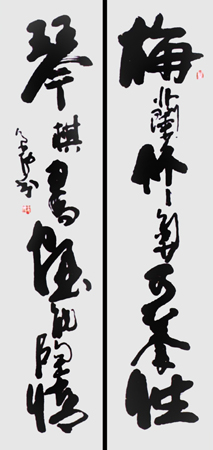 梅兰竹菊可养性
琴棋书画能陶情